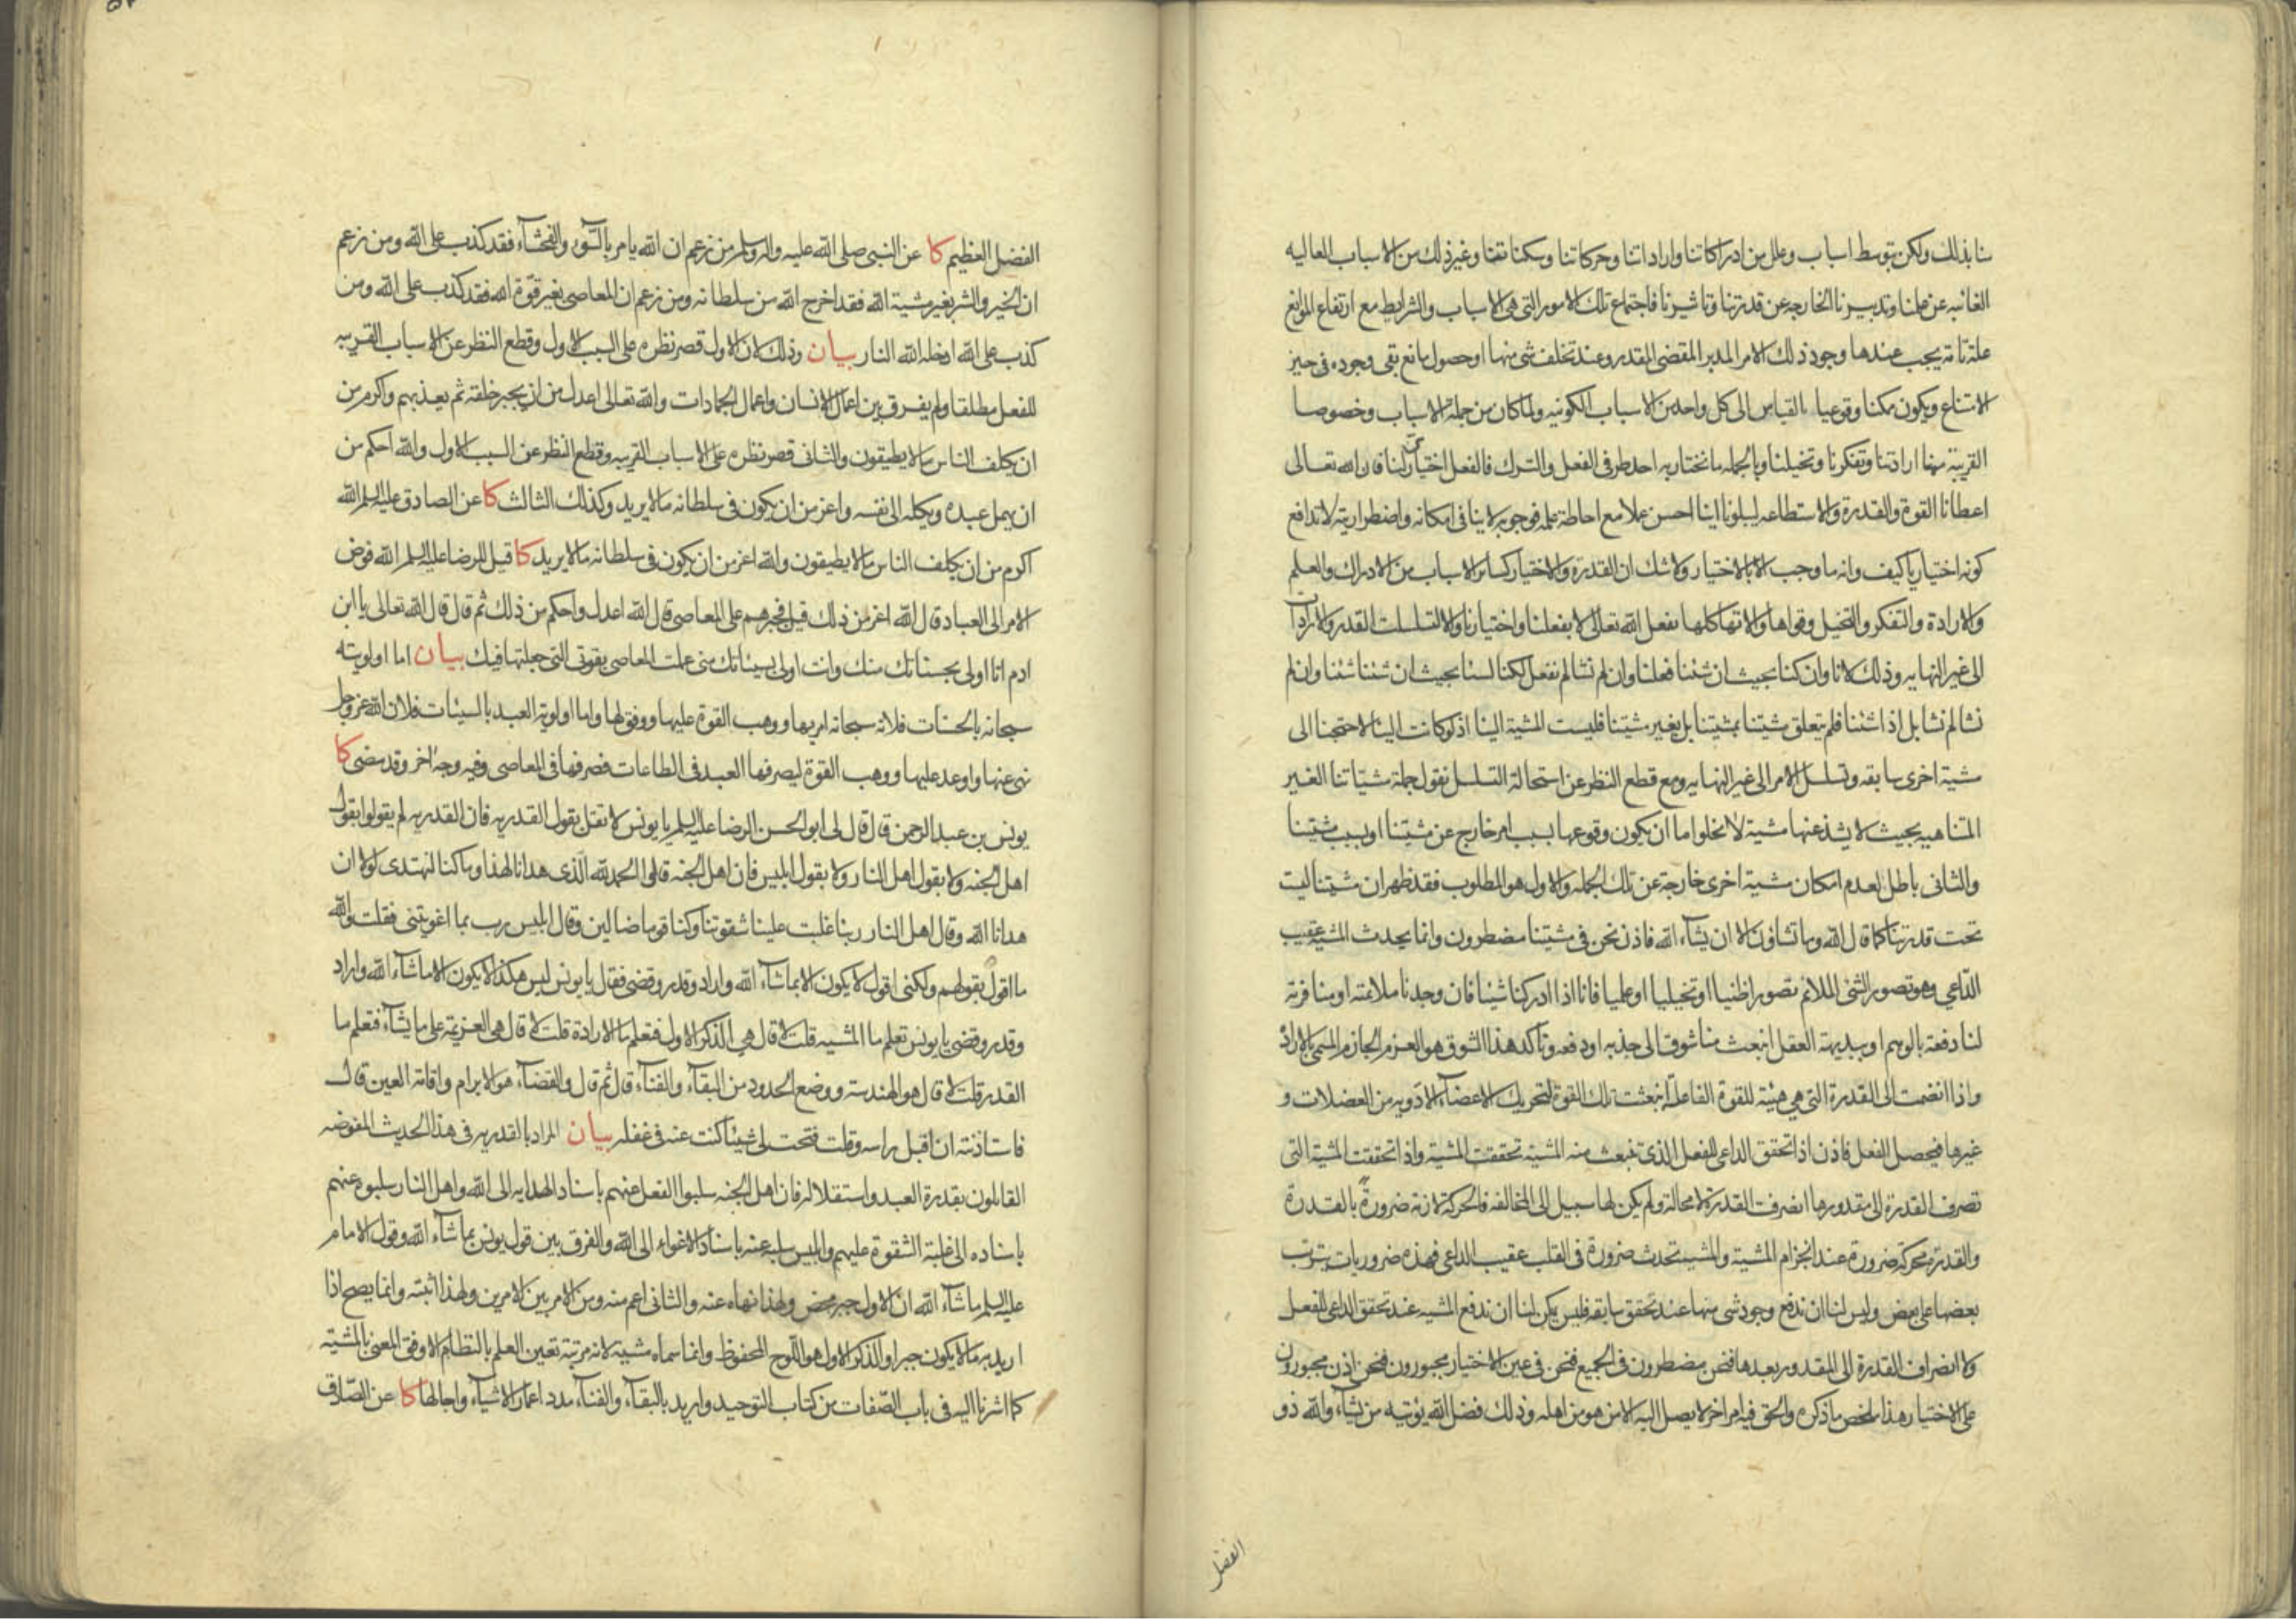 منا بذلك ولكن بتوسط اسباب وعلل من ادراكاتنا واراداتنا وحركاتنا وسكناتنا وغير ذلك من الاسباب العاليه
الغائبه عن علمنا وتدبيرنا الخارجه عن قدرتنا وتاثيرنا فاجتماع تلك الامور التى هى الاسباب والشرايط مع ارتفاع الموانع
علة تامة يجب عندها وجود ذلك الامر المدبر المقضى المقدر وعند تخلف شى منها او حصول مانع بقى وجوده فى حيز
الامتناع ويكون ممكنا وقوعيا بالقياس الى كل واحد من الاسباب الكونيه ولما كان من جملة الاسباب وخصوصا
القريبة منها ارادتنا وتفكرنا وتخيلنا وبالجمله ما نختار به احد طرفى الفعل والترك فالفعل اختيارى لنا فان الله تعالى
اعطانا القوة والقدرة والاستطاعه ليبلونا اينا احسن عملا مع احاطة علمه فوجوبه لا ينافى امكانه واضطراريته لا تدافع
كونه اختياريا كيف وانه ما وجب الا بالاختيار ولا شك ان القدرة والاختيار كساير الاسباب من الادراك والعلم
والارادة والتفكر والتخيل وقواها والاتها كلها بفعل الله تعالى لا بفعلنا واختيارنا والا لتسلسلت القدر والارادات
الى غير النهايه وذلك لانا وان كنا بحيث ان شئنا فعلنا وان لم نشا لم نفعل لكنا لسنا بحيث ان شئنا شئنا وان لم
نشا لم نشا بل اذا شئنا فلم يتعلق مشيتنا بمشيتنا بل بغير مشيتنا فليست المشية الينا اذ لو كانت الينا لاحتجنا الى
مشية اخرى سابقه وتسلسل الامر الى غير النهايه ومع قطع النظر عن استحالة التسلسل نقول جملة مشياتنا الغير
المتناهيه بحيث لا يشذ عنها مشية لا تخلوا اما ان يكون وقوعها بسبب امر خارج عن مشيتنا او بسبب مشيتنا
والثانى باطل لعدم امكان مشية اخرى خارجة عن تلك الجمله والاول هو المطلوب فقد ظهر ان مشيتنا ليست
تحت قدرتنا كما قال الله وما تشاؤن الا ان يشاء الله فاذن نحن فى مشيتنا مضطرون وانما يحدث المشية عقيب
الداعى وهو تصور الشئ الملائم تصورا ظنيا او تخيليا او علميا فانا اذا ادركنا شيئا فان وجدنا ملائمته او منافرته
لنا دفعة بالوهم او ببديهة العقل انبعث منا شوق الى جذبه او دفعه وتاكد هذا الشوق هو العزم الجازم المسمى بالارادة
واذا انضمت الى القدرة التى هى هيئة للقوة الفاعلة انبعثت تلك القوة لتحريك الاعضاء الادويه من العضلات و
غيرها فيحصل الفعل فاذن اذا تحقق الداعى للفعل الذى تنبعث منه المشية تحققت المشية واذا تحققت المشية التى
تصرف القدرة الى مقدورها انصرفت القدرة لا محالة ولم يكن لها سبيل الى المخالفه فالحركة لازمة ضرورة بالقدرة
والقدرة محركة ضرورة عند انجزام المشية والمشية تحدث ضرورة فى القلب عقيب الداعى فهذه ضروريات يترتب
بعضها على بعض وليس لنا ان ندفع وجود شى منها عند تحقق سابقه فليس يمكن لنا ان ندفع المشيه عند تحقق الداعى للفعل
ولا انصراف القدرة الى المقدور بعدها فنحن مضطرون فى الجميع فنحن فى عين الاختيار مجبورون فنحن اذن مجبورون
على الاختيار هذا ملخص ما ذكره والحق فيه امر اخر لا يصل اليه الا من هو من اهله وذلك فضل الله يؤتيه من يشاء والله ذو
الفضل
الفضل العظيم كا عن النبى صلى الله عليه واله وسلم من زعم ان الله يامر بالسوء والفحشاء فقد كذب على الله ومن زعم
ان الخير والشر بغير مشية الله فقد اخرج الله من سلطانه ومن زعم ان المعاصى بغير قوة الله فقد كذب على الله ومن
كذب على الله ادخله الله النار بيان وذلك لان الاول قصر نظره على السبب الاول وقطع النظر عن الاسباب القريبه
للفعل مطلقا ولم يفرق بين اعمال الانسان واعمال الجمادات والله تعالى اعدل من ان يجبر خلقه ثم يعذبهم واكرم من
ان يكلف الناس ما لا يطيقون والثانى قصر نظره على الاسباب القريبه وقطع النظر عن السبب الاول والله احكم من
ان يهمل عبده ويكله الى نفسه واعز من ان يكون فى سلطانه ما لا يريد وكذلك الثالث كا عن الصادق عليه السلم الله
اكرم من ان يكلف الناس ما لا يطيقون والله اعز من ان يكون فى سلطانه ما لا يريد كا قيل للرضا عليه السلم الله فوض
الامر الى العباد قال الله اعز من ذلك قيل فجبرهم على المعاصى قال الله اعدل واحكم من ذلك ثم قال قال الله تعالى يا ابن
ادم انا اولى بحسناتك منك وانت اولى بسيئاتك منى عملت المعاصى بقوتى التى جعلتها فيك بيان اما اولويته
سبحانه بالحسنات فلانه سبحانه امر بها ووهب القوة عليها ووفق لها واما اولوية العبد بالسيئات فلان الله عز وجل
نهى عنها واوعد عليها ووهب القوة ليصرفها العبد فى الطاعات فصرفها فى المعاصى وفيه وجه اخر وقد مضى كا
يونس بن عبد الرحمن قال قال لى ابو الحسن الرضا عليه السلم يا يونس لا تقل بقول القدريه فان القدريه لم يقولوا بقول
اهل الجنه ولا بقول اهل النار ولا بقول ابليس فان اهل الجنه قالوا الحمد لله الذى هدانا لهذا وما كنا لنهتدى لولا ان
هدانا الله وقال اهل النار ربنا غلبت علينا شقوتنا وكنا قوما ضالين وقال ابليس رب بما اغويتنى فقلت والله
ما اقول بقولهم ولكنى اقول لا يكون الا بما شاء الله واراد وقدر وقضى فقال يا يونس ليس هكذا لا يكون الا ما شاء الله واراد
وقدر وقضى يا يونس تعلم ما المشيه قلت لا قال هى الذكر الاول فتعلم ما الارادة قلت لا قال هى العزيمة على ما يشاء فتعلم ما
القدر قلت لا قال هو الهندسة ووضع الحدود من البقاء والفناء قال ثم قال والقضاء هو الابرام واقامة العين قال
فاستاذنته ان اقبل راسه وقلت فتحت لى شيئا كنت عنه فى غفله بيان المراد بالقدريه فى هذا الحديث المفوضه
القائلون بقدرة العبد واستقلاله فان اهل الجنه سلبوا الفعل عنهم باسناد الهدايه الى الله واهل النار سلبوه عنهم
باسناده الى غلبة الشقوة عليهم وابليس سلبه عنه باسناد الاغواء الى الله والفرق بين قول يونس بما شاء الله وقول الامام
عليه السلم ما شاء الله ان الاول جبر محض ولهذا نهاه عنه والثانى اعم منه ومن الامر بين الامرين ولهذا اثبته وانما يصح اذا
اريد به ما لا يكون جبرا والذكر الاول هو اللوح المحفوظ وانما سماه مشية لانه مرتبة تعين العلم بالنظام الاوفق المعنى بالمشية
كما اشرنا اليه فى باب الصفات من كتاب التوحيد واريد بالبقاء والفناء مدد اعمار الاشياء واجالها كا عن الصادق